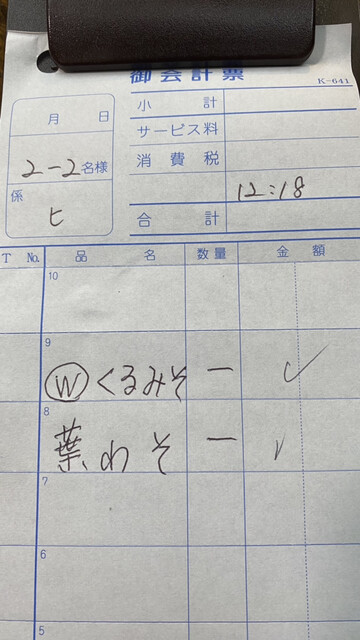 御会計票
K-641
月 日
2-2名様
係
ヒ
小計
サービス料
消費税
12:18
合計
T No. 品名 数量 金額
10
9
Ⓦくるみそ 一 ✓
8
葉わそ 一 ✓
7
6
5